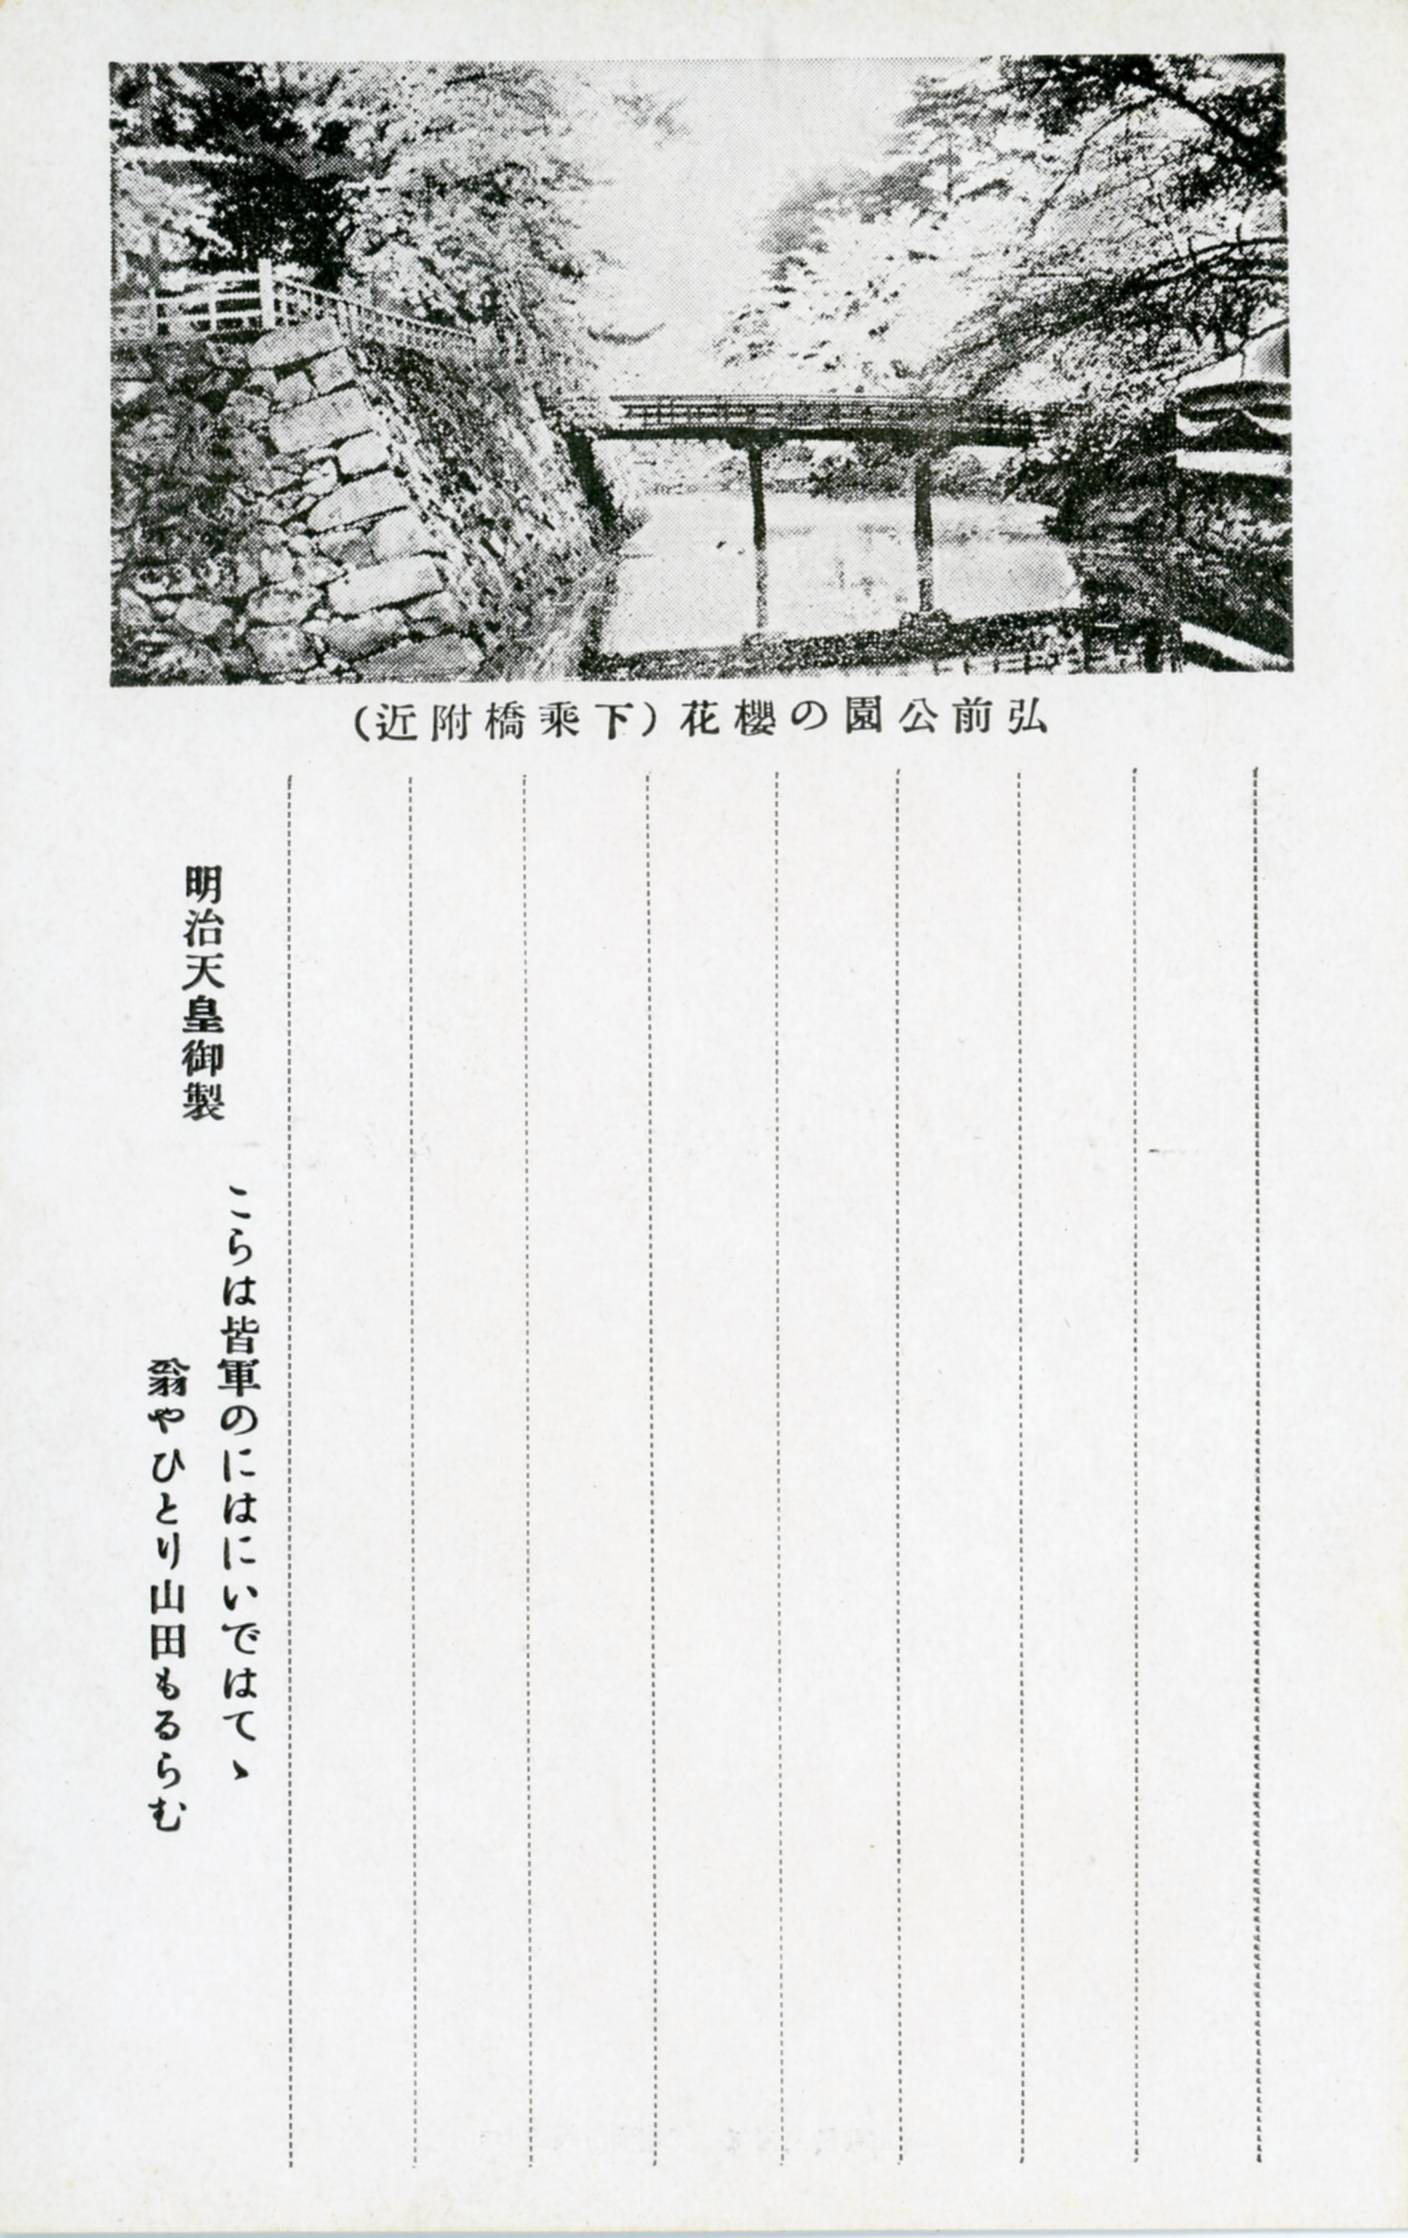 弘前公園の櫻花(下乘橋附近)
明治天皇御製
こらは皆軍のにはにいではてゝ
翁やひとり山田もるらむ